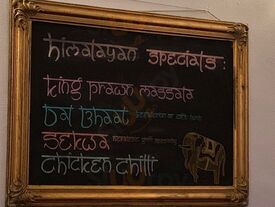 himalayan specials:
king prawn massala
Dal Bhaat
Sekwa
chicken chilli